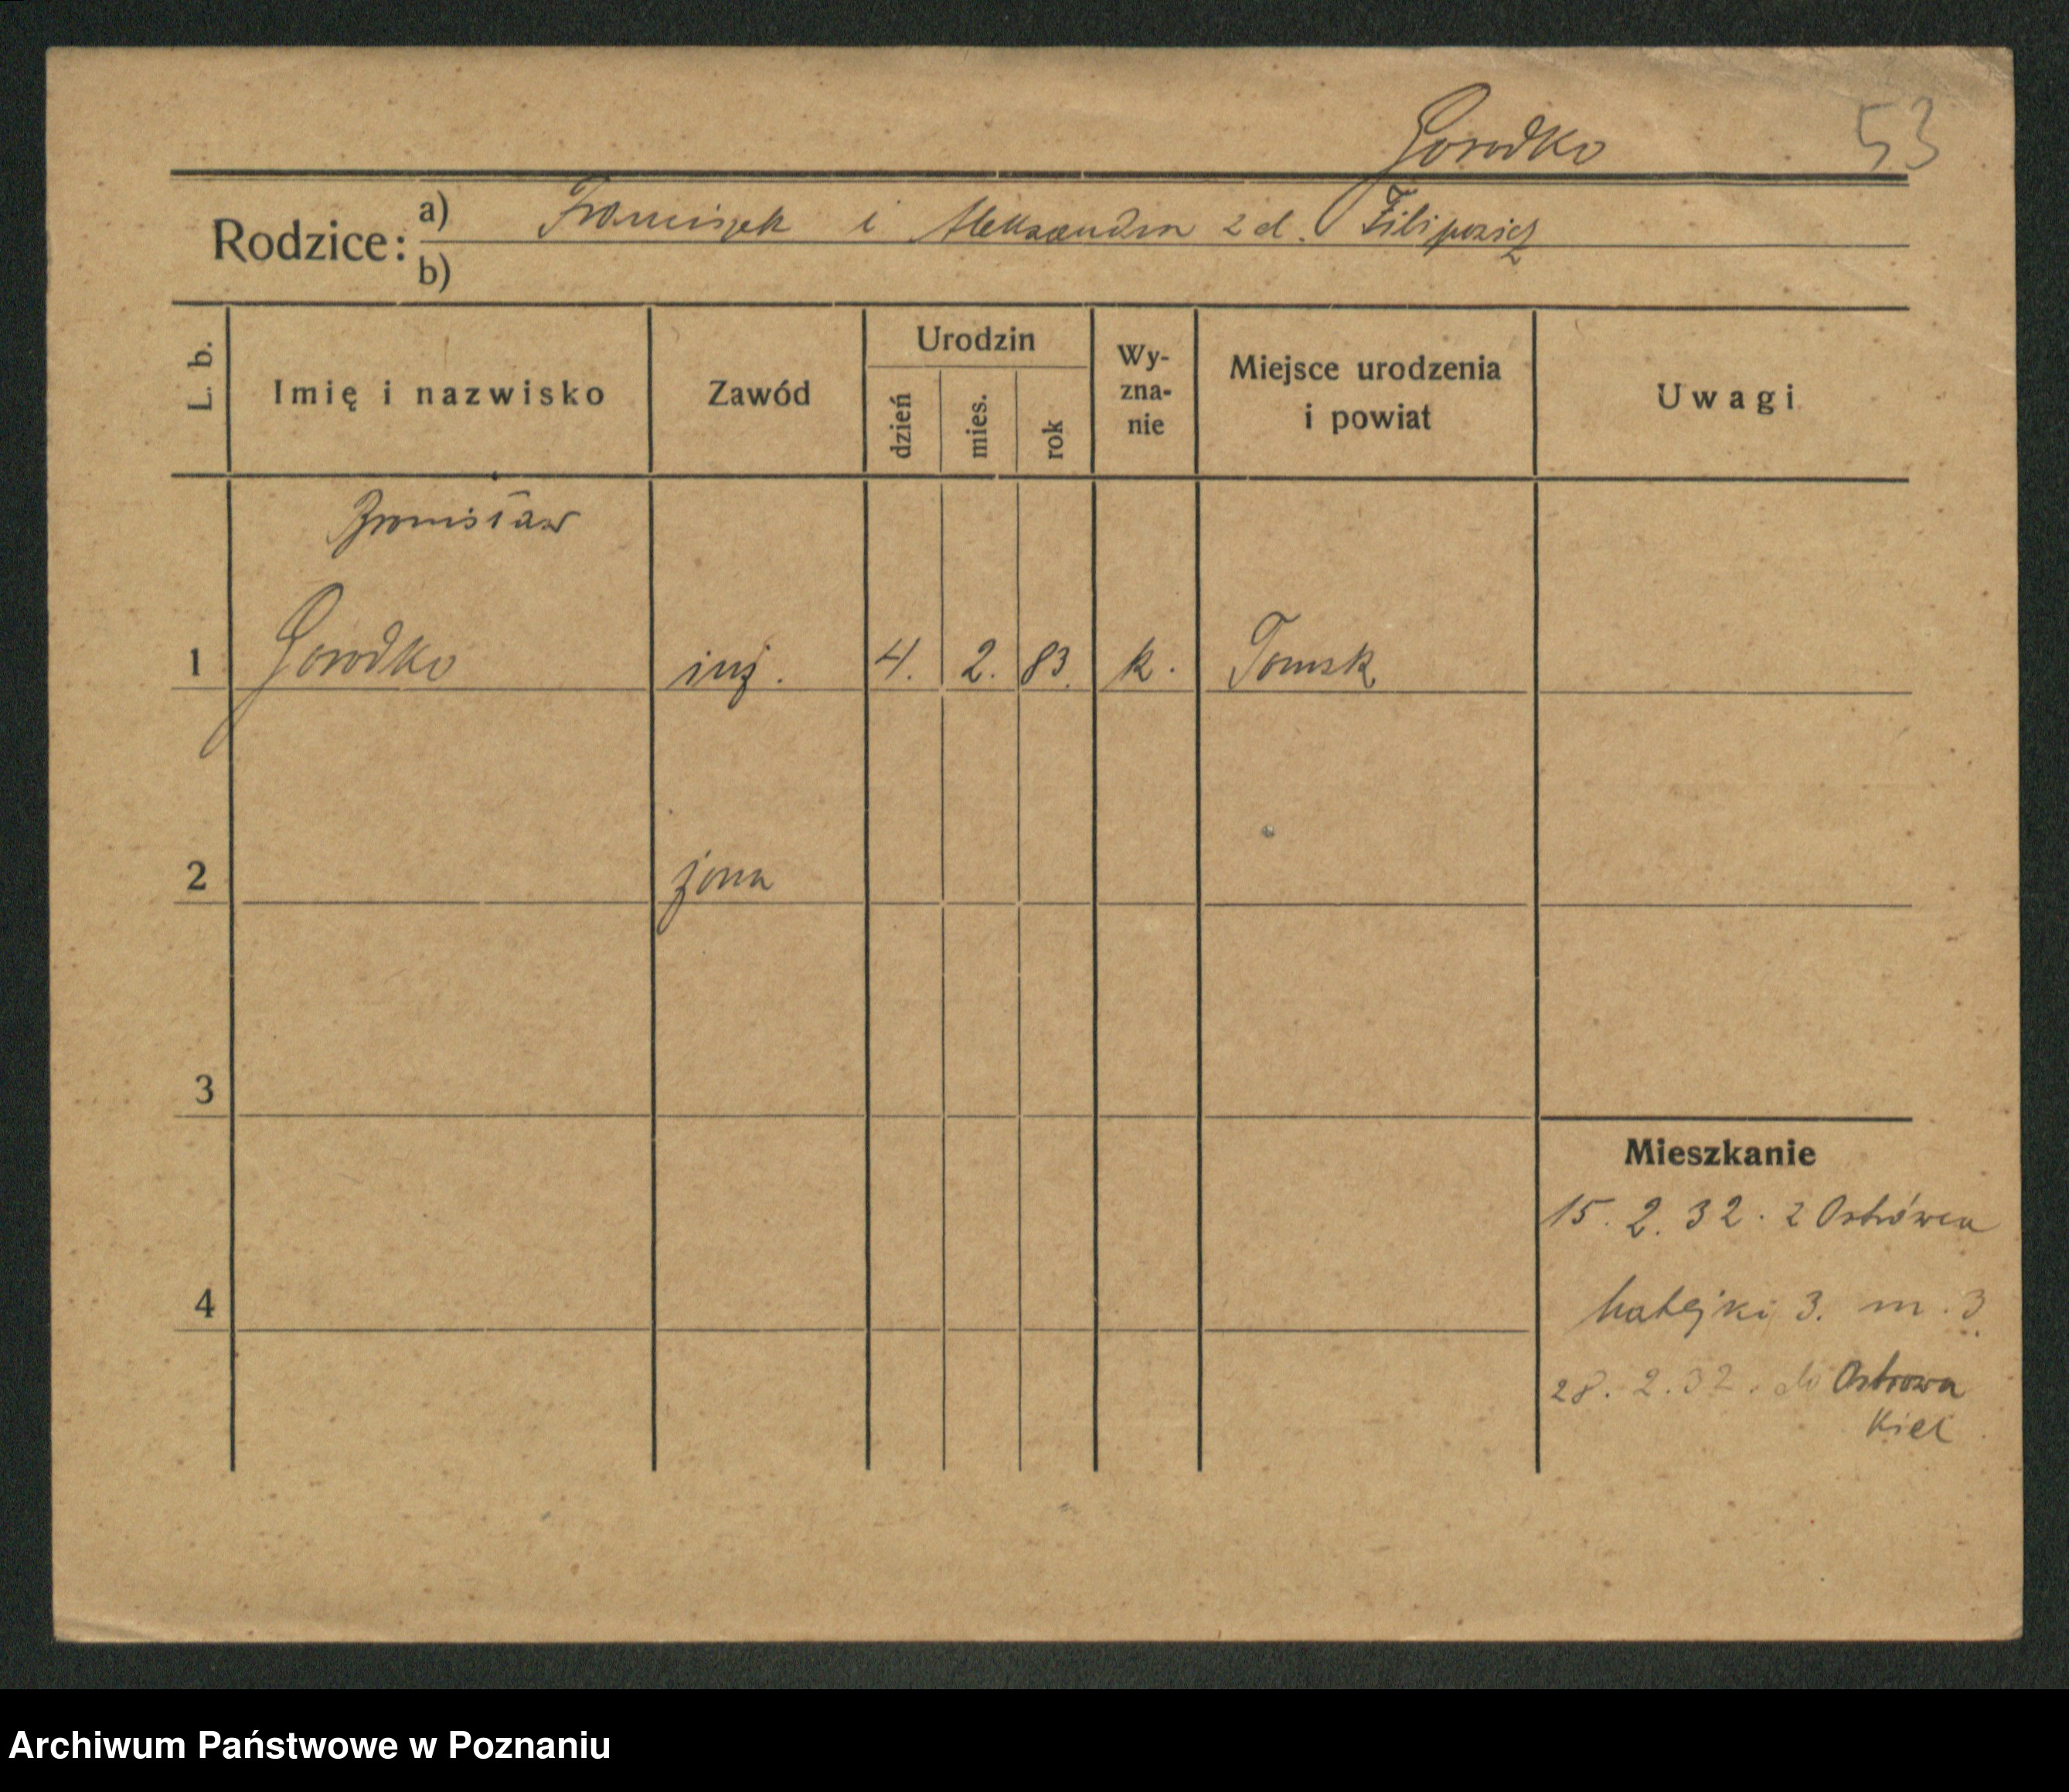 Gorodko 53
Rodzice: a) Franciszek i Aleksandra z d. Filipowicz
b)
L. b. Imię i nazwisko Zawód Urodzin dzień mies. rok Wyznanie Miejsce urodzenia i powiat Uwagi
Bronisław
1 Gorodko inż. 4. 2. 83. k. Tomsk
2 żona
3
Mieszkanie
15. 2. 32. z Ostrówca
4 Matejki 3. m. 3.
28. 2. 32. do Ostrowa
Kiel
Archiwum Państwowe w Poznaniu